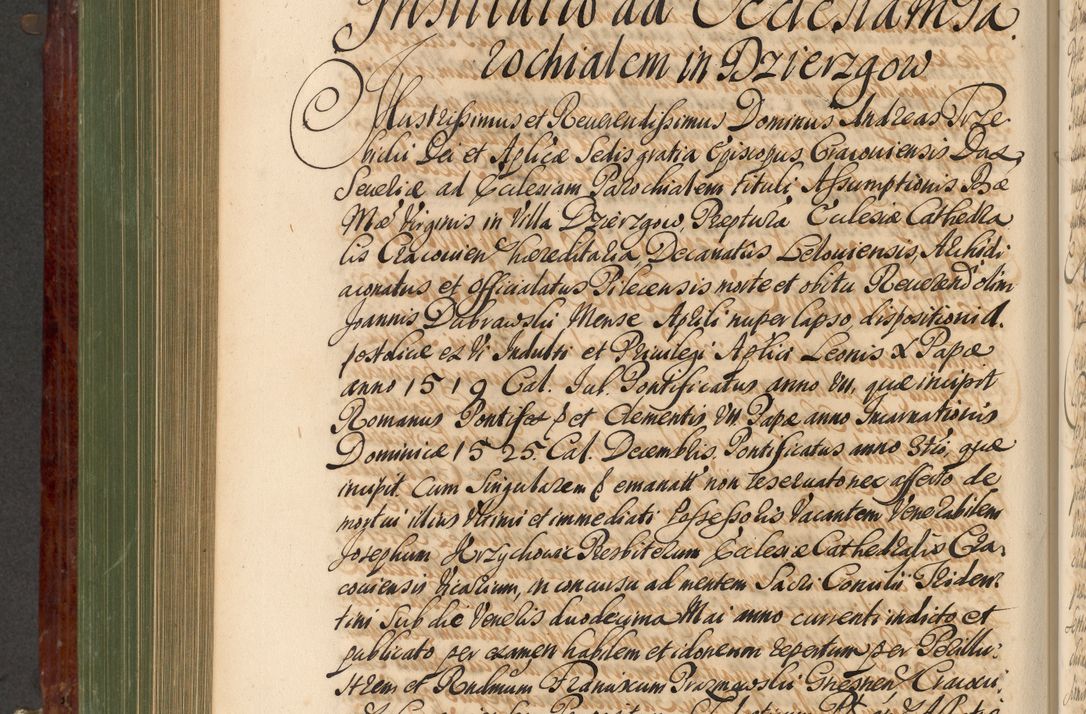 Institutio ad Ecclesiam Pa
rochialem in Dzierzgow
Illustrissimus et Reuerendissimus Dominus Andreas Trze
bicki Dei et Aplicæ Sedis gratia Episcopus Cracouiensis Dux
Seueriæ ad Ecclesiam Parochialem tituli Assumptionis Bæ
Mæ Virginis in Villa Dzierzgow, Præptura Ecclesiæ Cathedra
lis Cracouien hæreditaria, Decanatus Lelouiensis, Archidi
aconatus et Officialatus Pilecensis morte et obitu Reuerend olim
Joannis Dabrawski Mense Aprili nuper lapso, dispositioni A.
postolicæ ex Vi Indulti et Priuilegi Aplici Leonis X Papæ
anno 1519 Cal. Jul. Pontificatus anno VII. quæ incipit
Romanus Pontifex & et Clementis VII Papæ anno Incarnationis
Dominicæ 1525. Cal. Decemblis, Pontificatus anno 3tio, quæ
incipit. Cum Singularem & emanatt non reseruato nec affecto de
mortui illius Vltimi et immediati possessoris Vacantem Venerabilem
Josephum Krzychowic Presbiterum Ecclesiæ Cathedralis Cra-
couiensis Vicarium, in concursu ad mentem Sacri Concilii Triden
tini Sub die Veneris duodecima Mai anno currenti indicto et
publicato per examen habilem et idoneum repertum per Perillu-
strem et Rndmum Franciscum Prazmowski Gnesnen Cracoui.